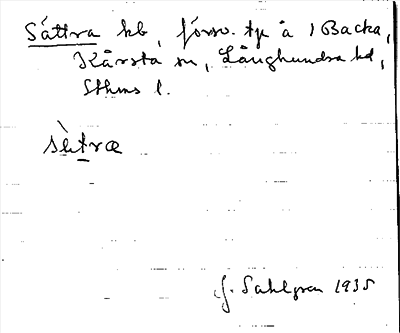 Sättra hb, försv. tp å 1 Backa,
Kårsta sn, Långhundra hd,
Sthms l.
sètræ
J. Sahlgren 1935